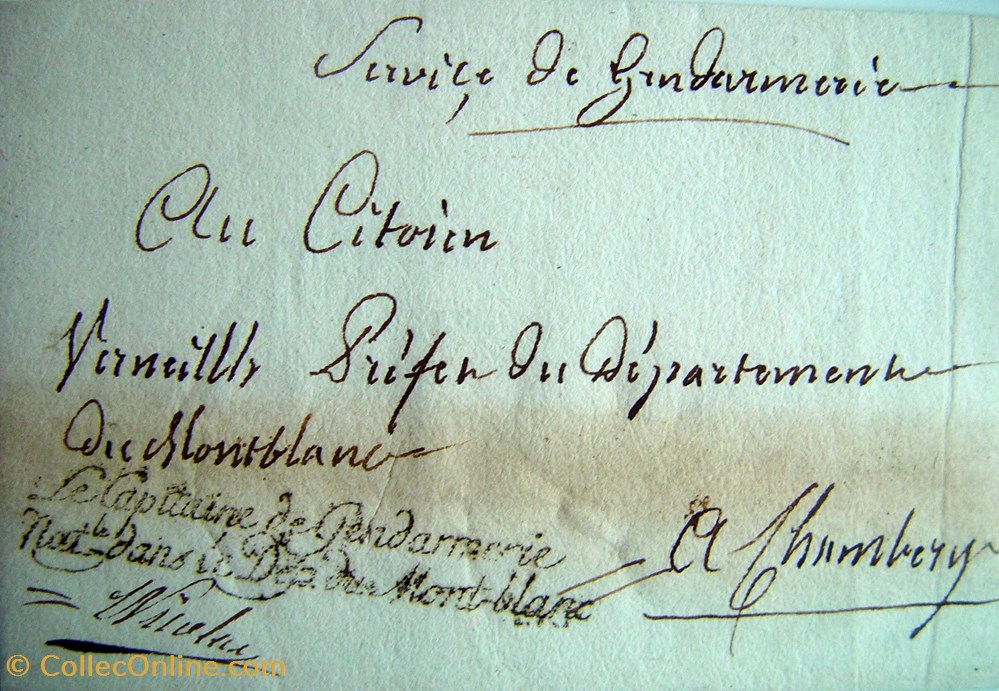 Service de Gendarmerie
Au Citoien
Verneilh Préfet du Département
du Montblanc
Le Capitaine de Gendarmerie
Natle dans le Dép. du Mont-blanc
A Chambery
Nicolas
© CollecOnline.com